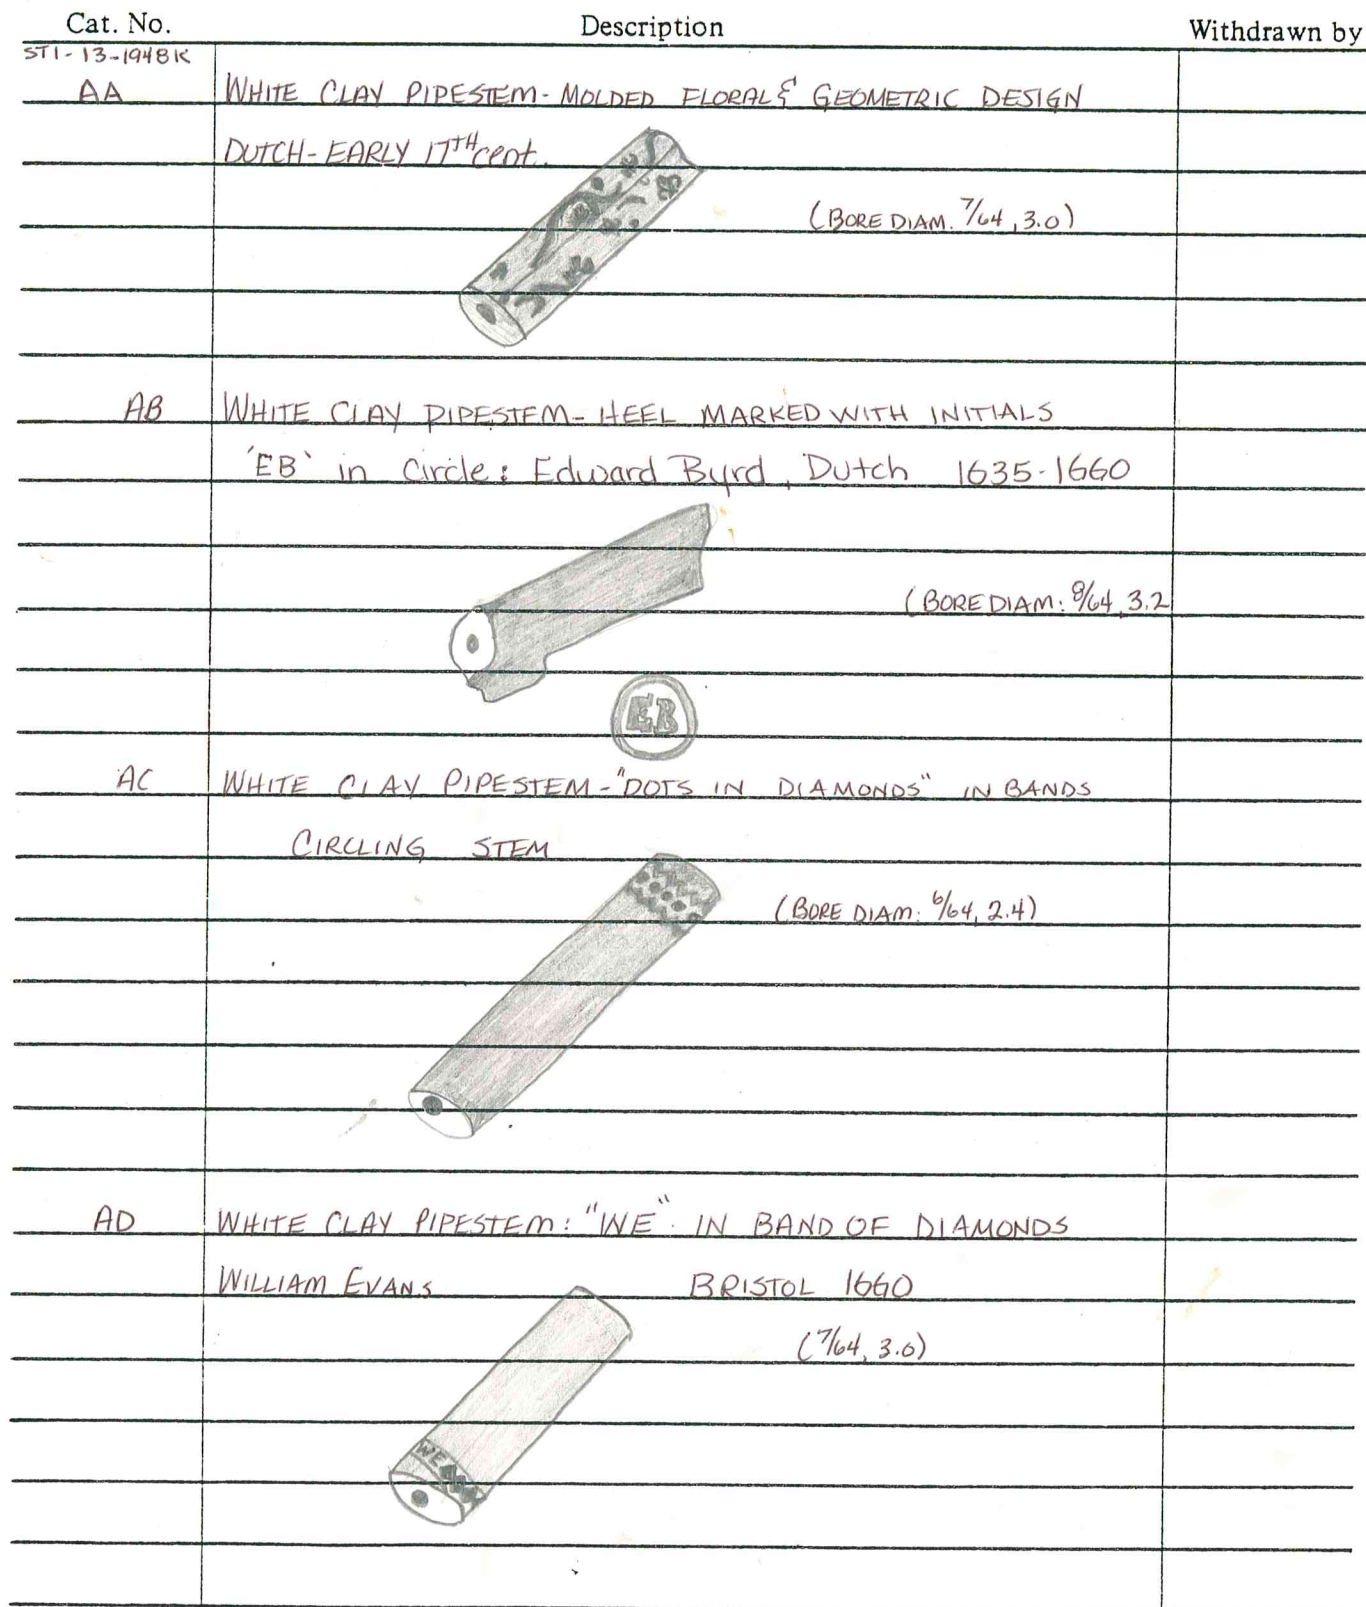 Cat. No. Description Withdrawn by
ST1-13-1948K
AA WHITE CLAY PIPESTEM- MOLDED FLORAL & GEOMETRIC DESIGN
DUTCH- EARLY 17TH cent.
(BORE DIAM. 7/64, 3.0)
AB WHITE CLAY PIPESTEM- HEEL MARKED WITH INITIALS
'EB' in Circle: Edward Byrd, Dutch 1635-1660
(BORE DIAM: 8/64, 3.2
EB
AC WHITE CLAY PIPESTEM- "DOTS IN DIAMONDS" IN BANDS
CIRCLING STEM
(BORE DIAM: 6/64, 2.4)
AD WHITE CLAY PIPESTEM: "WE" IN BAND OF DIAMONDS
WILLIAM EVANS BRISTOL 1660
(7/64, 3.0)
WE